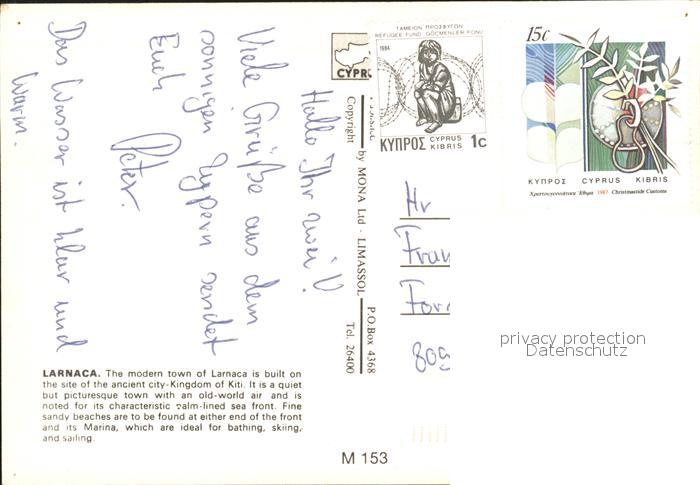 Hallo Ihr zwei!
Viele Grüße aus dem
sonnigen Zypern sendet
Euch
Peter.
Das Wasser ist klar und
warm.
LARNACA. The modern town of Larnaca is built on
the site of the ancient city-Kingdom of Kiti. It is a quiet
but picturesque town with an old-world air and is
noted for its characteristic palm-lined sea front. Fine
sandy beaches are to be found at either end of the front
and its Marina, which are ideal for bathing, skiing,
and sailing.
CYPR
Copyright by MONA Ltd - LIMASSOL P.O.Box 4368
Tel. 26400
M 153
ΤΑΜΕΙΟΝ ΠΡΟΣΦΥΓΩΝ
REFUGEE FUND GÖCMENLER FONU
1984
ΚΥΠΡΟΣ CYPRUS KIBRIS 1c
15c
ΚΥΠΡΟΣ CYPRUS KIBRIS
Χριστουγεννιάτικα Έθιμα 1987 Christmastide Customs
Hr
Fran
For
809
privacy protection
Datenschutz